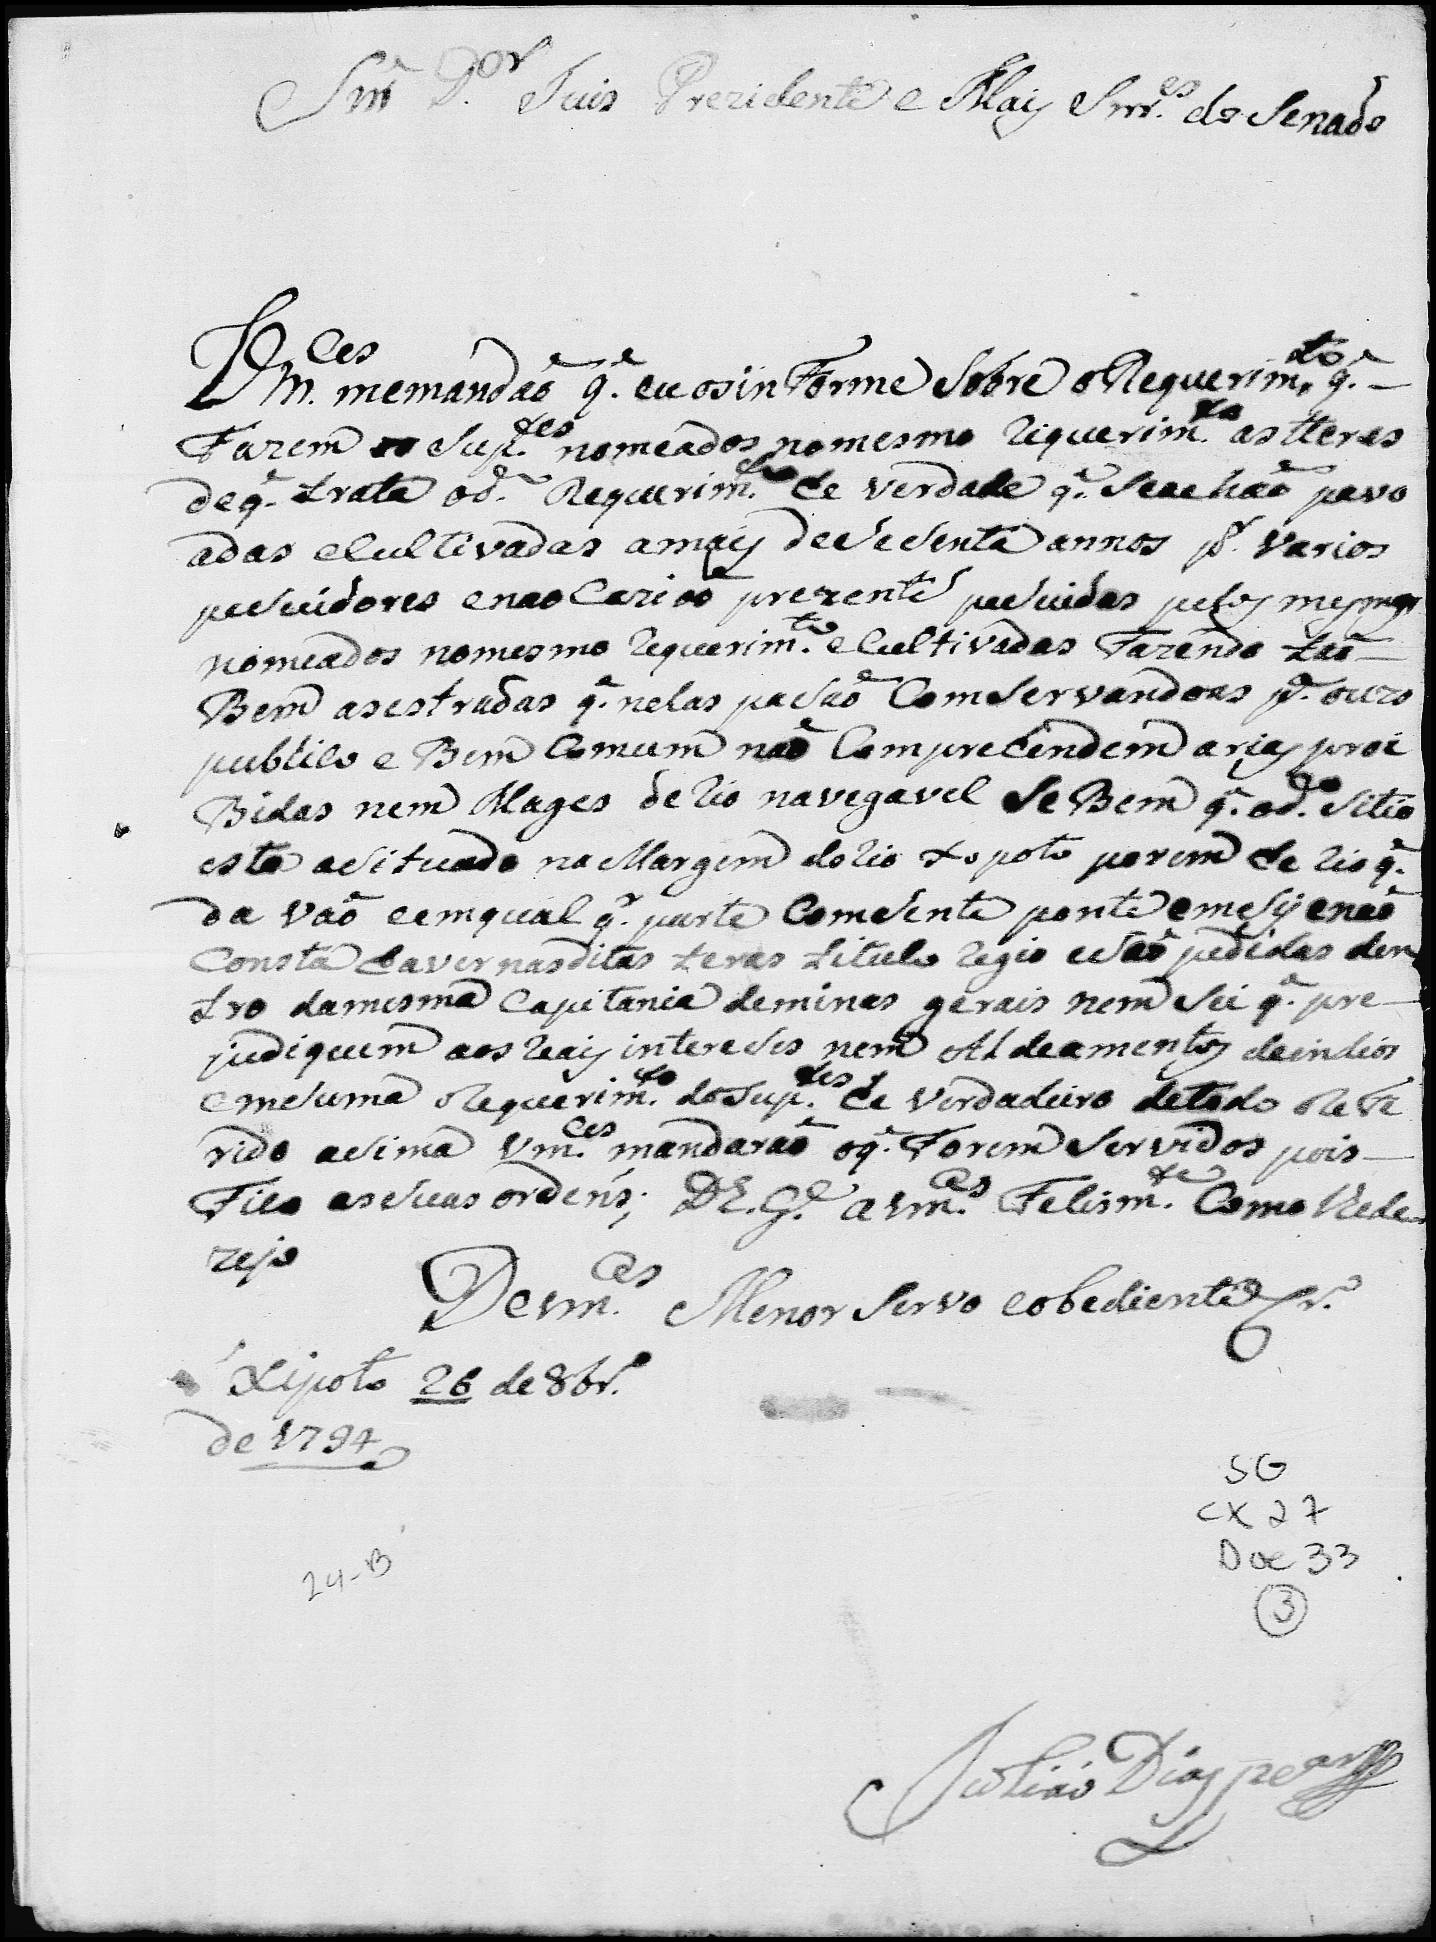 Snr̃ D.or Juis Prezidente e Mais Snr.es do Senado
Vm.ces memandaõ q̃. eu osinForme Sobre oRequerim.to q̃.
Fazem os Sup.tes nomeados nomesmo Riquerim.to as tteras
deq̃. trata od.o Requerim.to he verdade q̃. Seachaõ povo
adas eCultivadas amais deSeSenta annos p.r varios
puSuidores enao Cazioõ prezente puSuidas pelos mesmos
nomeados nomesmo Requerim.to eCultivadas Fazendo taõ
Bem asestradas q̃. nelas paSaõ ComServandoas p.a ouzo
publico e Bem Comum naõ Comprehendem arias proi
Bidas nem Mages de Rio navegavel Se Bem q̃. od.o Sitio
esta aSituado na Margem doRio xopoto porem he Rio q̃.
da vaõ eemqual q̃. parte ComSente ponte emeSij enaõ
Consta haver nasditas teras titulo Regio eSaõ pedidas den
tro damesma Capitania deminas gerais nem Sei q̃. pre
judiquem aos Reais intereSes nem Aldeamentos deindios
emSuma oRequerim.to doSup.tes he verdadeiro detodo oRefe
rido aSima Vm.ces mandaraõ oq̃. Forem Servidos pois
Fico aSuas ordens; D.s G.e a Vm.ces Felism.te Como Hede
zejo
DeVm.ces Menor Servo eobediente Cr.o
Xipoto 26 de 8br.o
de 1794
24-B
SG
CX 27
Doc 33
3
Julião Dias